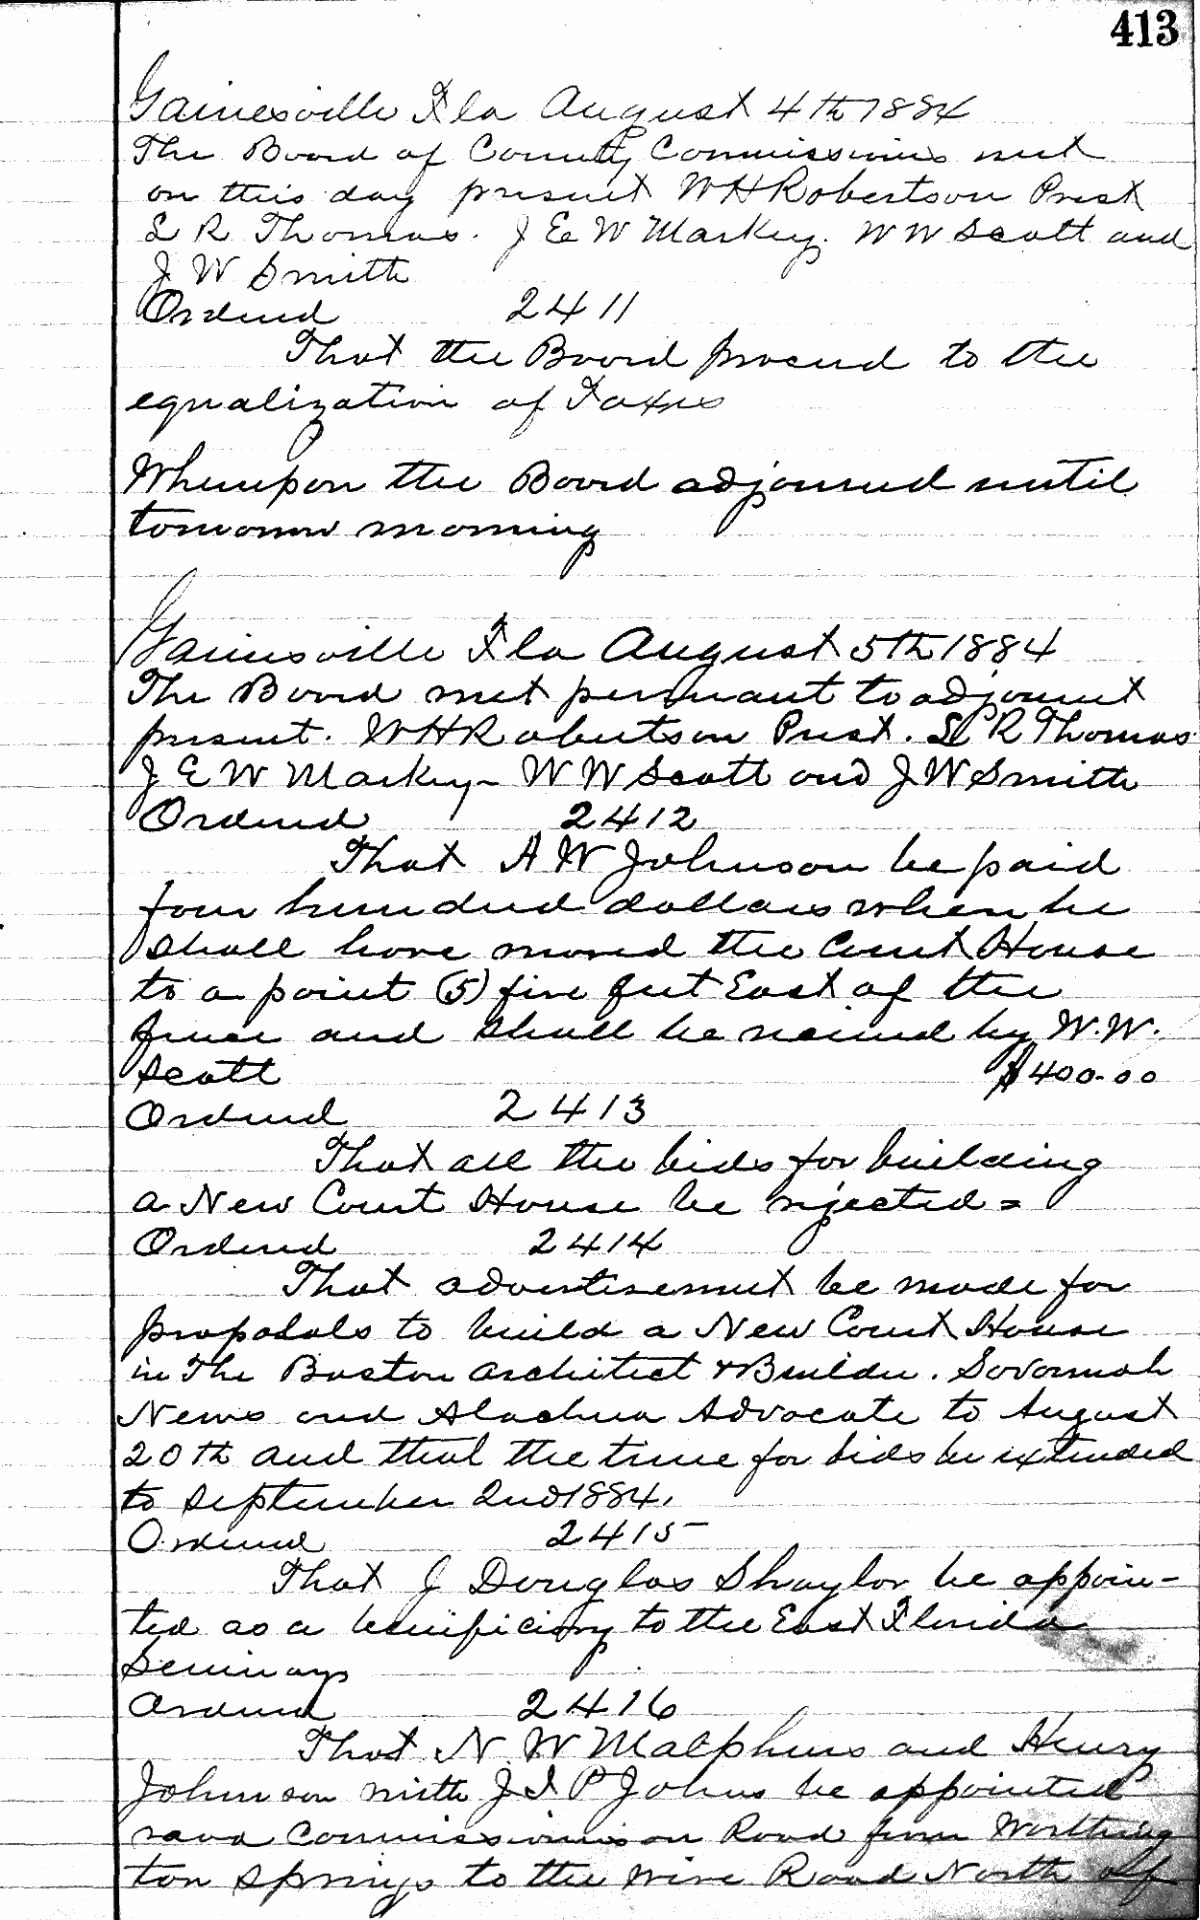 413
Gainesville Fla August 4th 1884
The Board of County Commissioners met
on this day present W H Robertson Prest
L R Thomas. J E W Markey. W W Scott and
J W Smith
Ordered 2411
That the Board proceed to the
equalization of Taxes
Whereupon the Board adjourned until
tomorrow morning
Gainesville Fla August 5th 1884
The Board met persuant to adjournt
present. W H Robertson Prest. L R Thomas
J E W Markey - W W Scott and J W Smith
Ordered 2412
That A W Johnson be paid
four hundred dollars when he
shall have moved the Court House
to a point (5) five feet East of the
fence and shall be received by W. W.
Scott $400.00
Ordered 2413
That all the bids for building
a New Court House be rejected =
Ordered 2414
That advertisement be made for
proposals to build a New Court House
in The Boston Architect & Builder. Savannah
News and Alachua Advocate to August
20th and that the time for bids be extended
to September 2nd 1884.
Ordered 2415
That J Douglas Shaylor be appoin-
ted as a benificiary to the East Florida
Seminary
Ordered 2416
That N. W Malphurs and Henry
Johnson with J I P Johns be appointed
road Commissioners on Road from Worthing
ton Springs to the wire Road North of